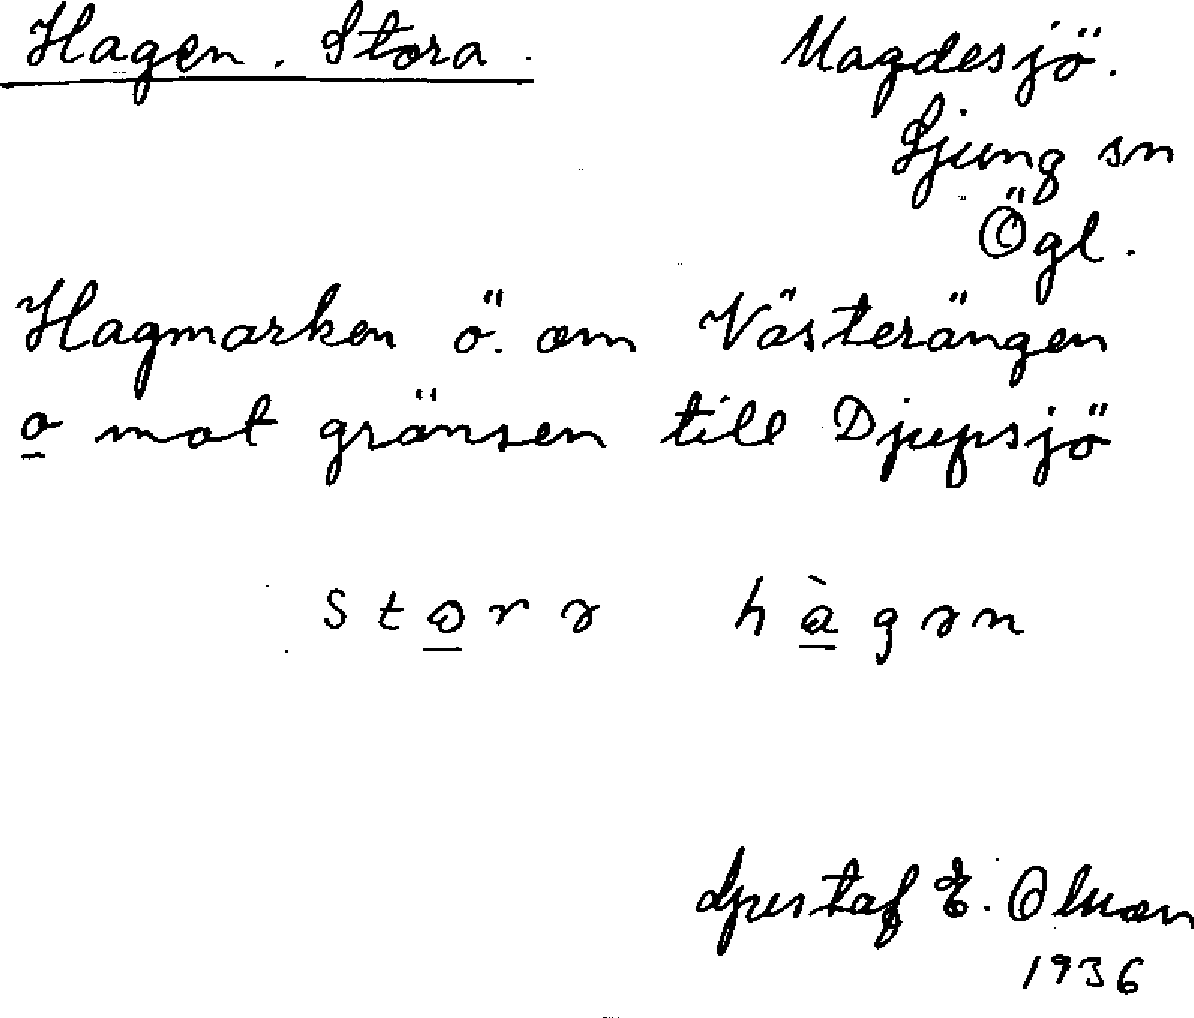 Hagen. Stora.
Magdesjö.
Ljung sn
Ögl.
Hagmarken ö. om Västerängen
o mot gränsen till Djupsjö
stɷrə hàgən
Gustaf E. Olsson
1936